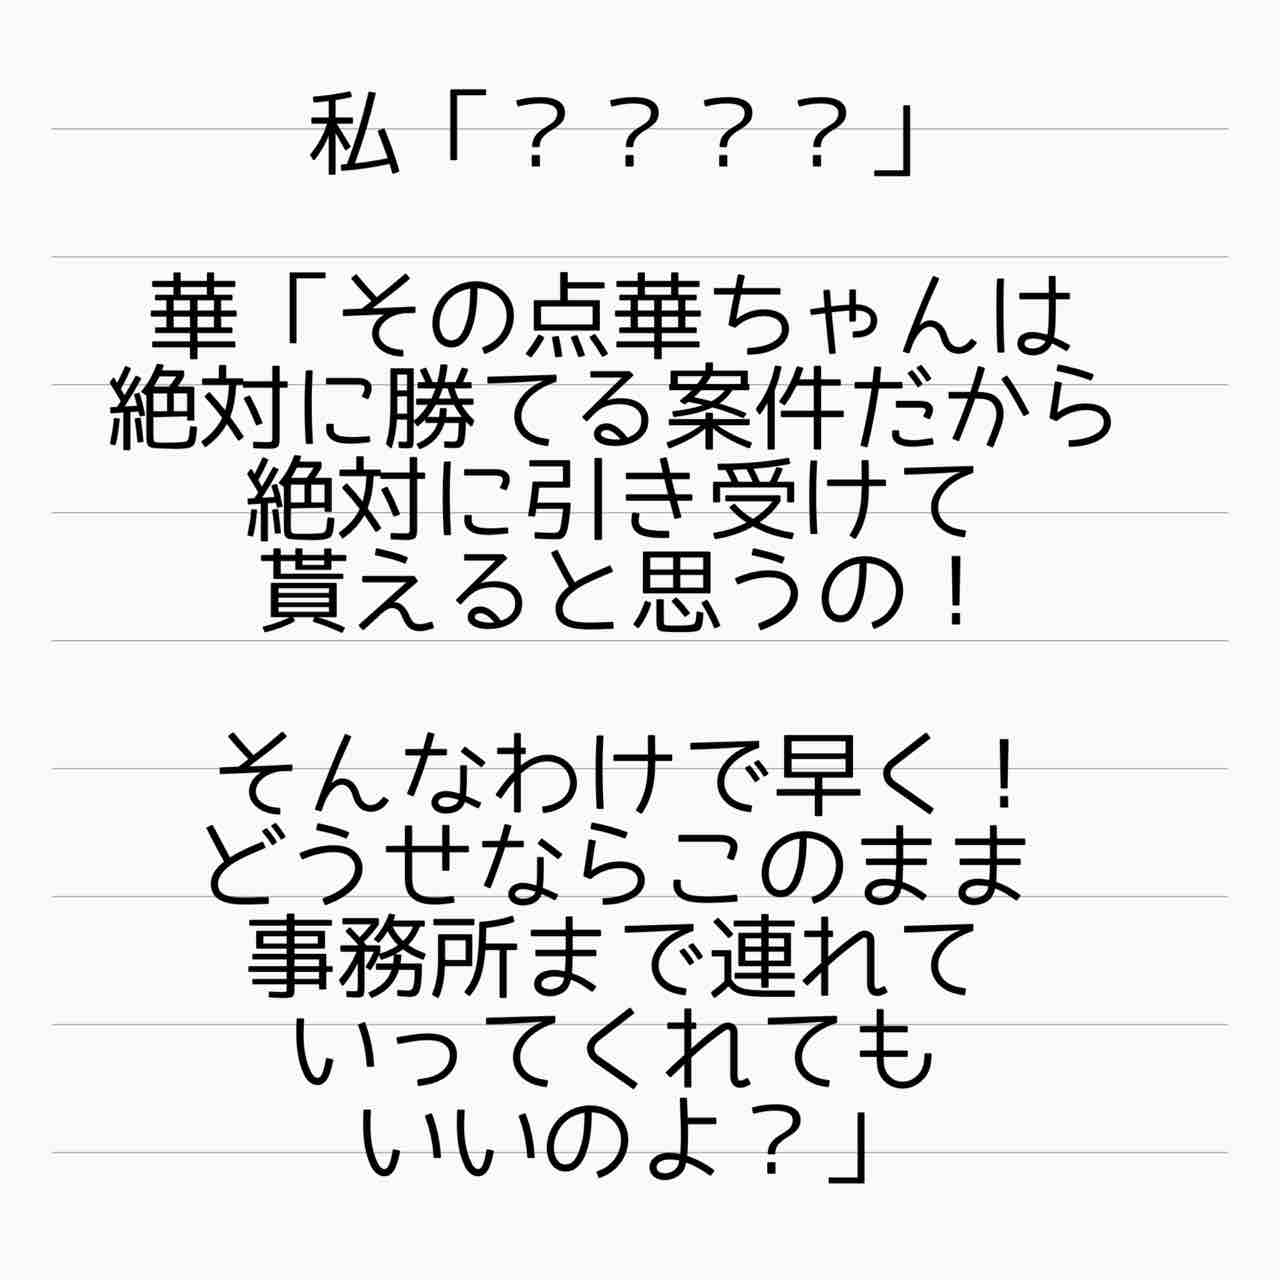 私「？？？？」
華「その点華ちゃんは
絶対に勝てる案件だから
絶対に引き受けて
貰えると思うの！
そんなわけで早く！
どうせならこのまま
事務所まで連れて
いってくれても
いいのよ？」